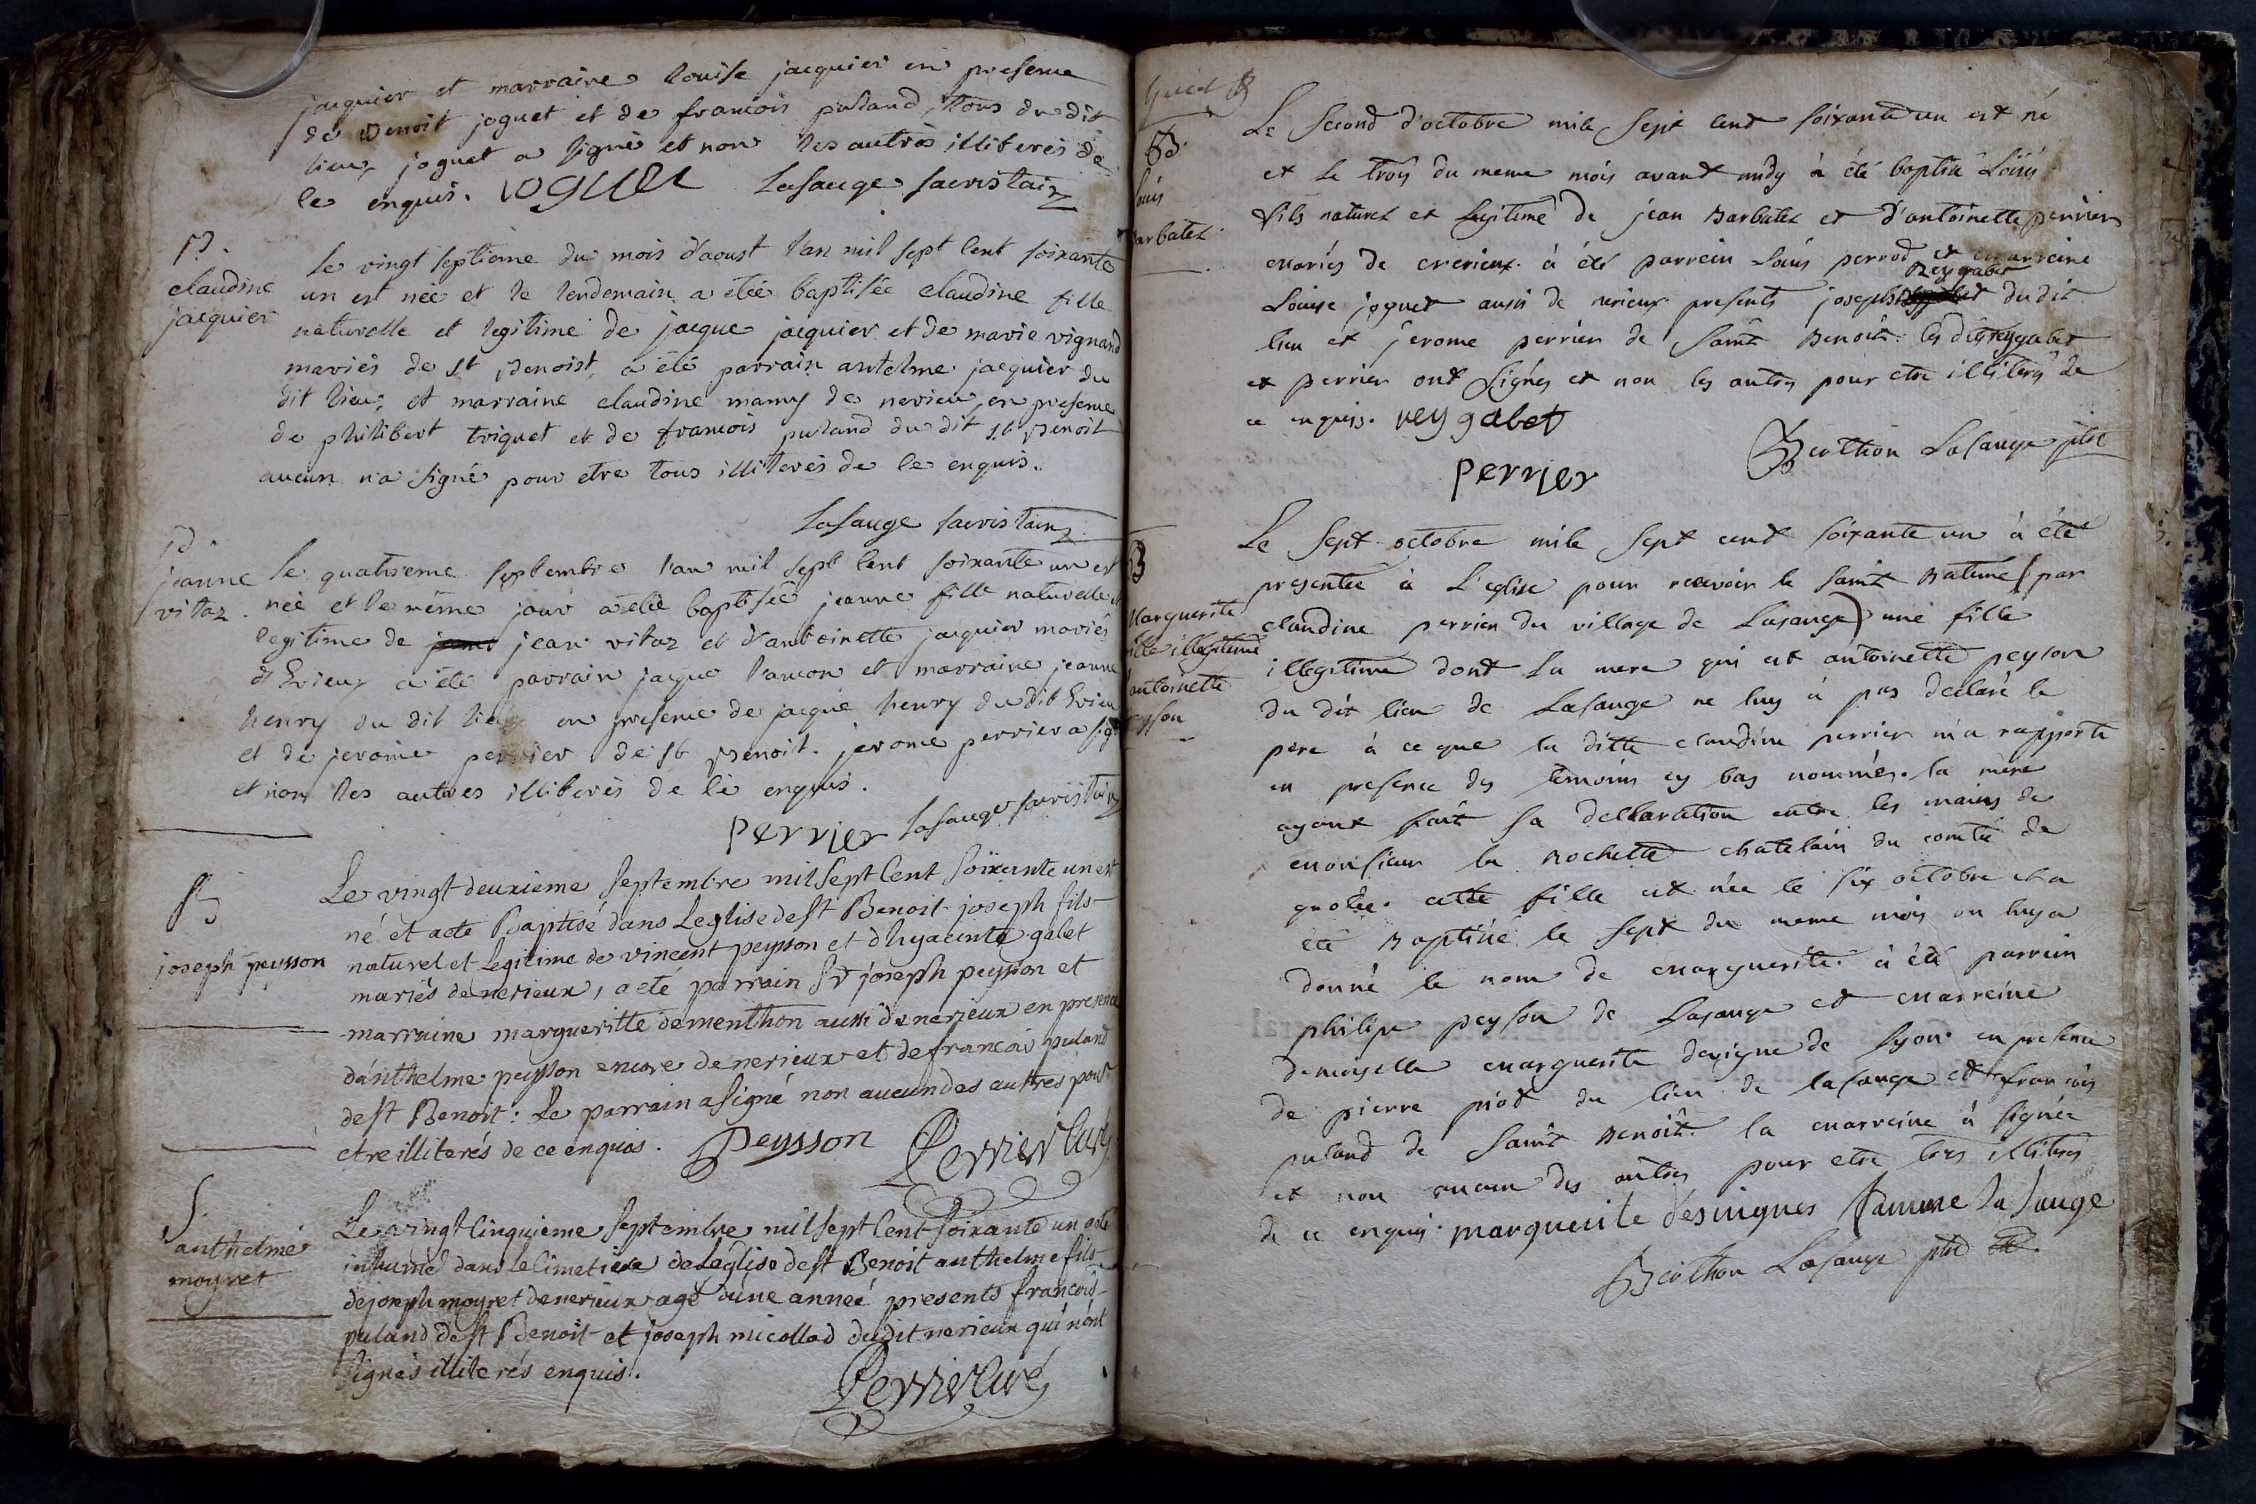 jacquier et marraine louise jacquier en presence
de Benoit joguet et de francois puland, tous du dit
lieu, joguet a signé et non les autres illiterés de
ce enquis. Lasauge sacristain
B.
claudine
jacquier
le vingt septieme du mois d'aoust l'an mil sept cent soixante
un est née et le lendemain a etée baptisée claudine fille
naturelle et legitime de jacque jacquier et de marie vignand
mariés de st Benoist, a été parrain antelme jacquier du
dit lieu, et marraine claudine mamy de nerieu, en presence
de philibert triquet et de francois puland du dit st Benoit
aucun n'a signé pour etre tous illiterés de ce enquis.
Lasauge sacristain
B.
jeanne
vitoz.
le quatrieme septembre l'an mil sept cent soixante un est
née et le même jour a etée baptisée jeanne fille naturelle et
legitime de jean vitoz et d'antoinette jacquier mariés
d'Evieux a été parrain jaque lancon et marraine jeanne
henry du dit lieu en presence de jacque henry du dit Evieu
et de jerome perrier de st Benoit. jerome perrier a signé
et non les autres illiterés de ce enquis.
perrier Lasauge sacristain
B
joseph peysson
Le vingt deuxieme septembre mil sept cent soixante un est
né et a eté Baptisé dans L'eglise de st Benoit joseph fils
naturel et Legitime de vincent peysson et d'hyacinte galet
mariés de nerieux, a eté parrain Sr joseph peysson et
marraine margueritte dementhon aussi de nerieux en presence
d'anthelme peysson encore de nerieux et de francois puland
de st Benoit: Le parrain a signé non aucun des autres pour
etre illiterés de ce enquis. Peysson Perrier Curé
S.
anthelme
moyret
Le vingt cinquieme septembre mil sept cent soixante un a été
inhumé dans le cimetiere de L'eglise de st Benoit anthelme fils
de joseph moyret de nerieux agé d'une anneé presents francois
puland de st Benoit et joseph micollod du dit nerieux qui n'ont
signés illiterés enquis.
Perrier Curé
B.
Louis
Barbatet.
Le second d'octobre mile sept cent soixante un est né
et le trois du meme mois avant midy à été baptisé Loüis
fils naturel et legitime de jean Barbatet et d'antoinette perrier
mariés de nerieux. à été parrein Loüis perrod et marreine
Louise joguet aussi de nerieux presents joseph Reygabet du dit
lieu et jerome perrier de saint Benoit. les dits reygabet
et perrier ont signés et non les autres pour etre illiterés de
ce enquis. reygabet
perrier
Berthon Lasauge ptre
B
Marguerite
fille illegitime
d'antoinette
peyson
Le sept octobre mile sept cent soixante un à été
presentée à L'eglise pour recevoir le saint Bateme (par
claudine perrier du village de Lasauge) une fille
illegitime dont la mere qui est antoinette peyson
du dit lieu de Lasauge ne luy à pas declaré le
pere à ce que la ditte claudine perrier m'a rapporté
en presence des temoins cy bas nommés. la mere
ayant fait sa declaration entre les mains de
monsieur la Rochette chatelain du comté de
grolée. cette fille est née le six octobre et a
été Baptisée le sept du meme mois on luy a
donné le nom de marguerite. à été parrein
philipe peyson de Lasauge et marreine
demoiselle marguerite devigne de Lyon. en presence
de pierre piot du lieu de lasauge et francois
puland de saint Benoit. la marreine à signée
et non aucun des autres pour etre tous illiterés
de ce enquis. marguerite désuignes famme la sauge
Berthon Lasauge ptre